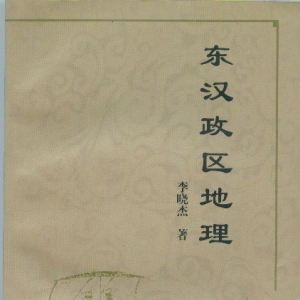 东汉政区地理
李晓杰 著